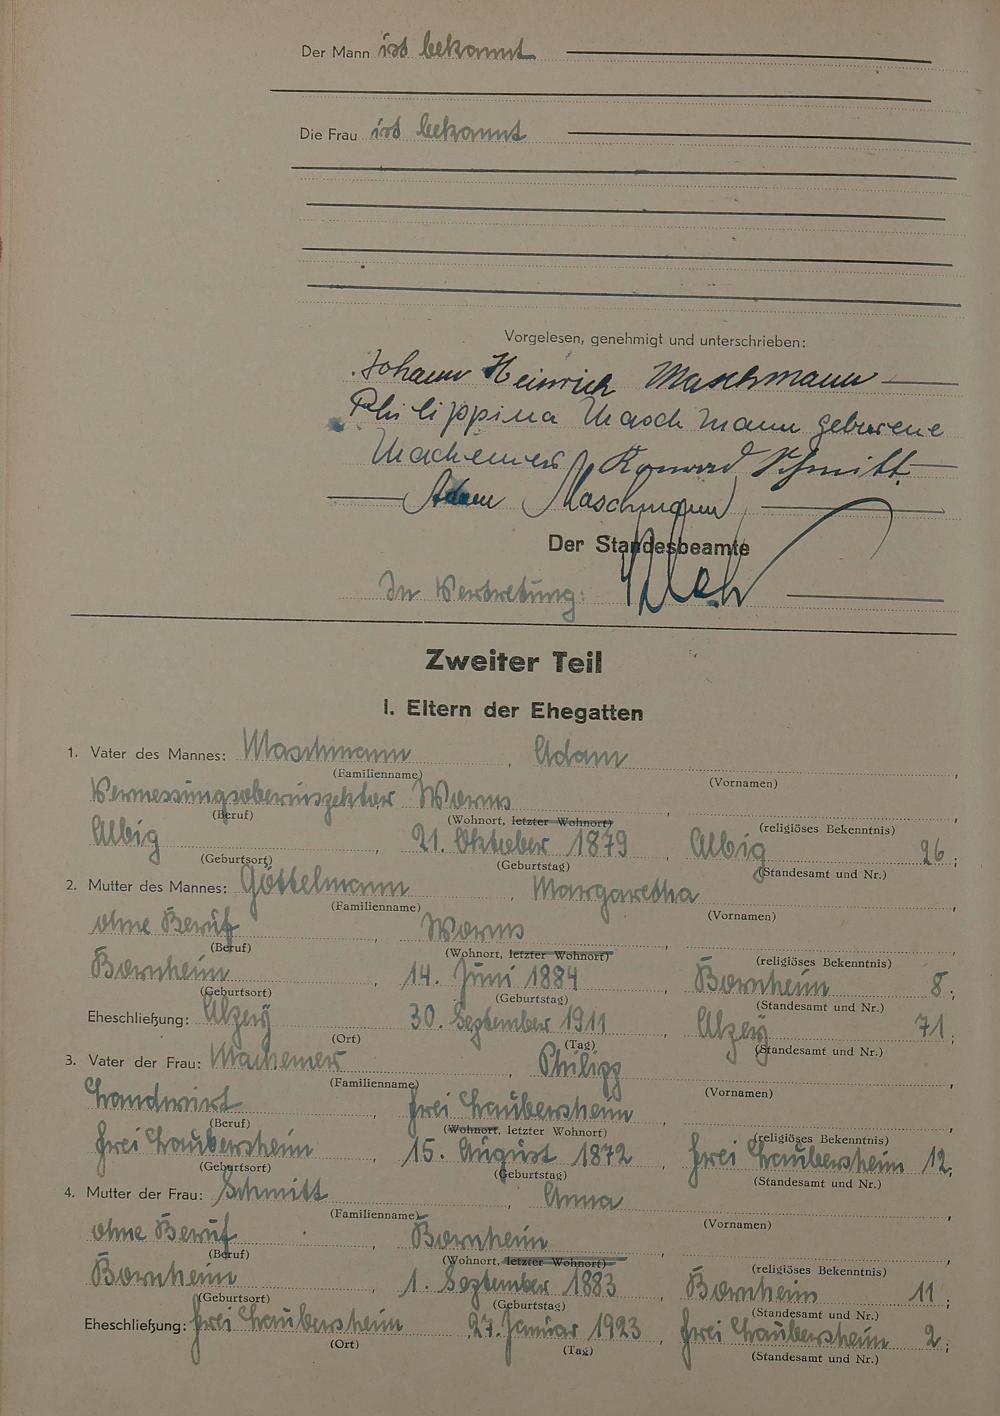 Der Mann ist bekannt
Die Frau ist bekannt
Vorgelesen, genehmigt und unterschrieben:
Johann Heinrich Maschmann
Philippina Maschmann geborene
Machemer Konrad Schmitt
Adam Maschmann
Der Standesbeamte
In Vertretung:
Zweiter Teil
I. Eltern der Ehegatten
1. Vater des Mannes: Maschmann, Adam,
(Familienname) (Vornamen)
Vermessungsoberinspektor Worms,
(Beruf) (Wohnort, letzter Wohnort) (religiöses Bekenntnis)
Albig, 21. Oktober 1879, Albig 26;
(Geburtsort) (Geburtstag) (Standesamt und Nr.)
2. Mutter des Mannes: Göttelmann, Margaretha,
(Familienname) (Vornamen)
ohne Beruf, Worms,
(Beruf) (Wohnort, letzter Wohnort) (religiöses Bekenntnis)
Bornheim, 14. Juni 1884, Bornheim 8;
(Geburtsort) (Geburtstag) (Standesamt und Nr.)
Eheschließung: Alzey, 30. September 1911, Alzey 71;
(Ort) (Tag) (Standesamt und Nr.)
3. Vater der Frau: Machemer, Philipp,
(Familienname) (Vornamen)
Landwirt, Frei Laubersheim,
(Beruf) (Wohnort, letzter Wohnort) (religiöses Bekenntnis)
Frei Laubersheim, 15. August 1872, Frei Laubersheim 12;
(Geburtsort) (Geburtstag) (Standesamt und Nr.)
4. Mutter der Frau: Schmitt, Anna,
(Familienname) (Vornamen)
ohne Beruf, Bornheim,
(Beruf) (Wohnort, letzter Wohnort) (religiöses Bekenntnis)
Bornheim, 1. September 1883, Bornheim 11;
(Geburtsort) (Geburtstag) (Standesamt und Nr.)
Eheschließung: Frei Laubersheim, 27. Januar 1923, Frei Laubersheim 2;
(Ort) (Tag) (Standesamt und Nr.)